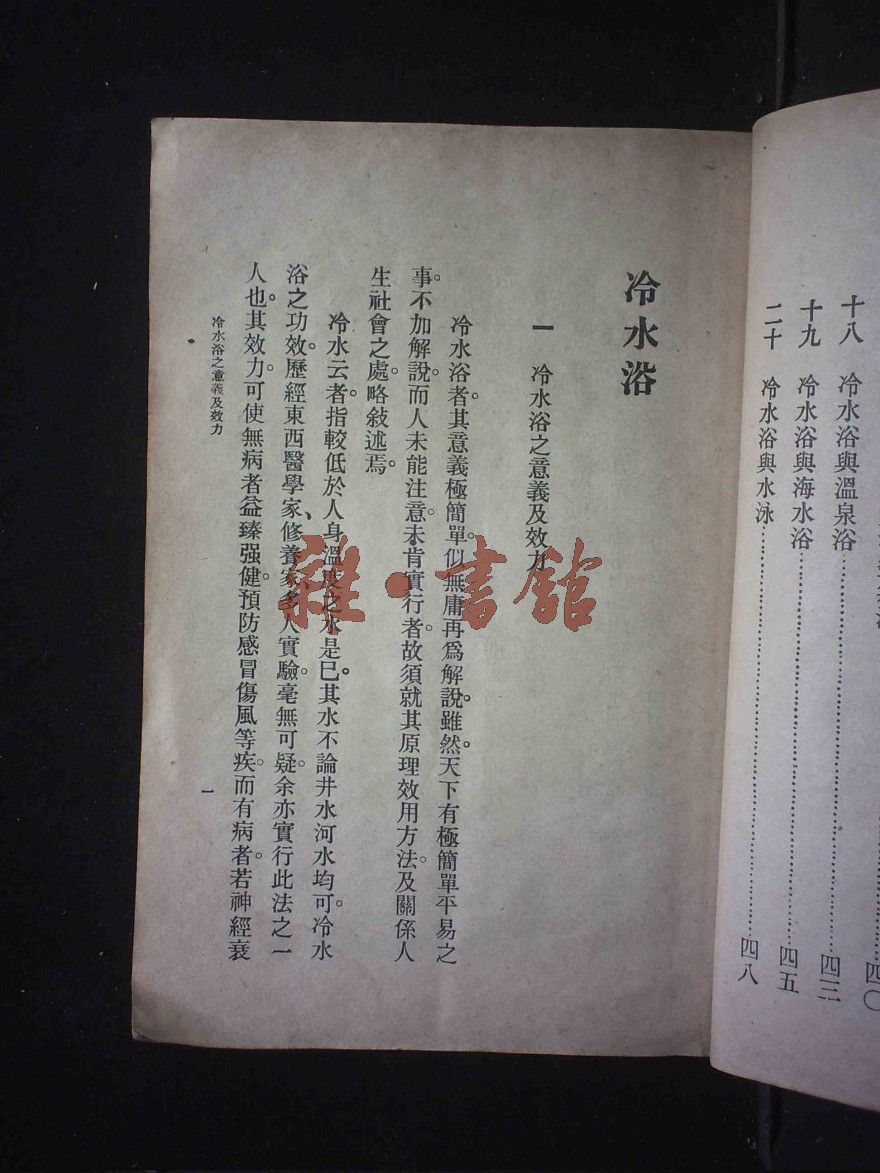 十八　冷水浴與溫泉浴………四三
十九　冷水浴與海水浴………四五
二十　冷水浴與水泳………四八
四〇
冷水浴
一　冷水浴之意義及效力
冷水浴者。其意義極簡單。似無庸再爲解說。雖然。天下有極簡單平易之
事。不加解說。而人未能注意。未肯實行者。故須就其原理效用方法。及關係人
生社會之處。略敍述焉。
冷水云者。指較低於人身溫度之水是已。其水不論井水河水均可。冷水
浴之功效。歷經東西醫學家、修養家、多人實驗。毫無可疑。余亦實行此法之一
人也。其效力。可使無病者益臻强健。預防感冒傷風等疾。而有病者。若神經衰
冷水浴之意義及效力
一
雜·書館